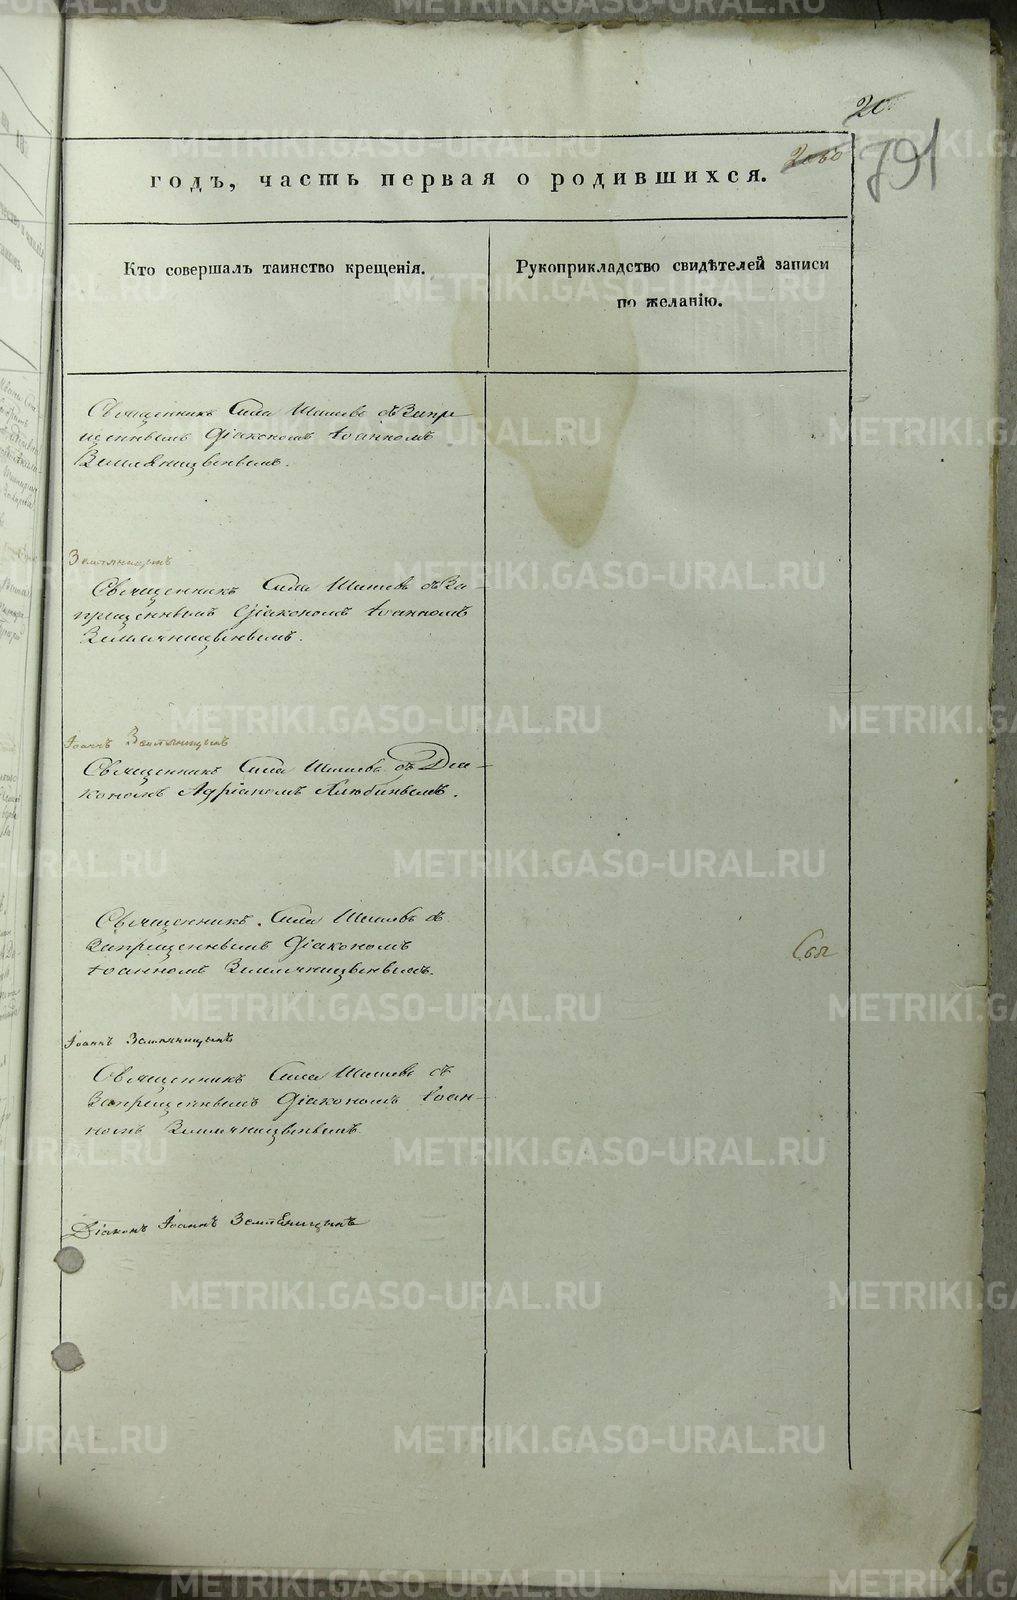 20
791
годъ, часть первая о родившихся.
Кто совершалъ таинство крещенія.
Рукоприкладство свидѣтелей записи
по желанію.
Священникъ Сила Шишевъ съ Запре
щеннымъ Діакономъ Іоанномъ
Земляницынымъ.
Земляницынъ
Священникъ Сила Шишевъ съ За-
прещеннымъ Діакономъ Іоанномъ
Земляницынымъ.
Іоаннъ Земляницынъ
Священникъ Сила Шишевъ съ Діа-
кономъ Адріаномъ
Священникъ Сила Шишевъ съ
Запрещеннымъ Діакономъ
Іоанномъ Земляницынымъ.
Іоаннъ Земляницынъ
Священникъ Сила Шишевъ съ
Запрещеннымъ Діакономъ Іоан-
номъ Земляницынымъ
Діаконъ Іоаннъ Земляницынъ
METRIKI.GASO-URAL.RU